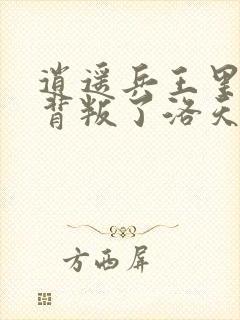 逍遥兵王里
背叛了洛天
方西屏